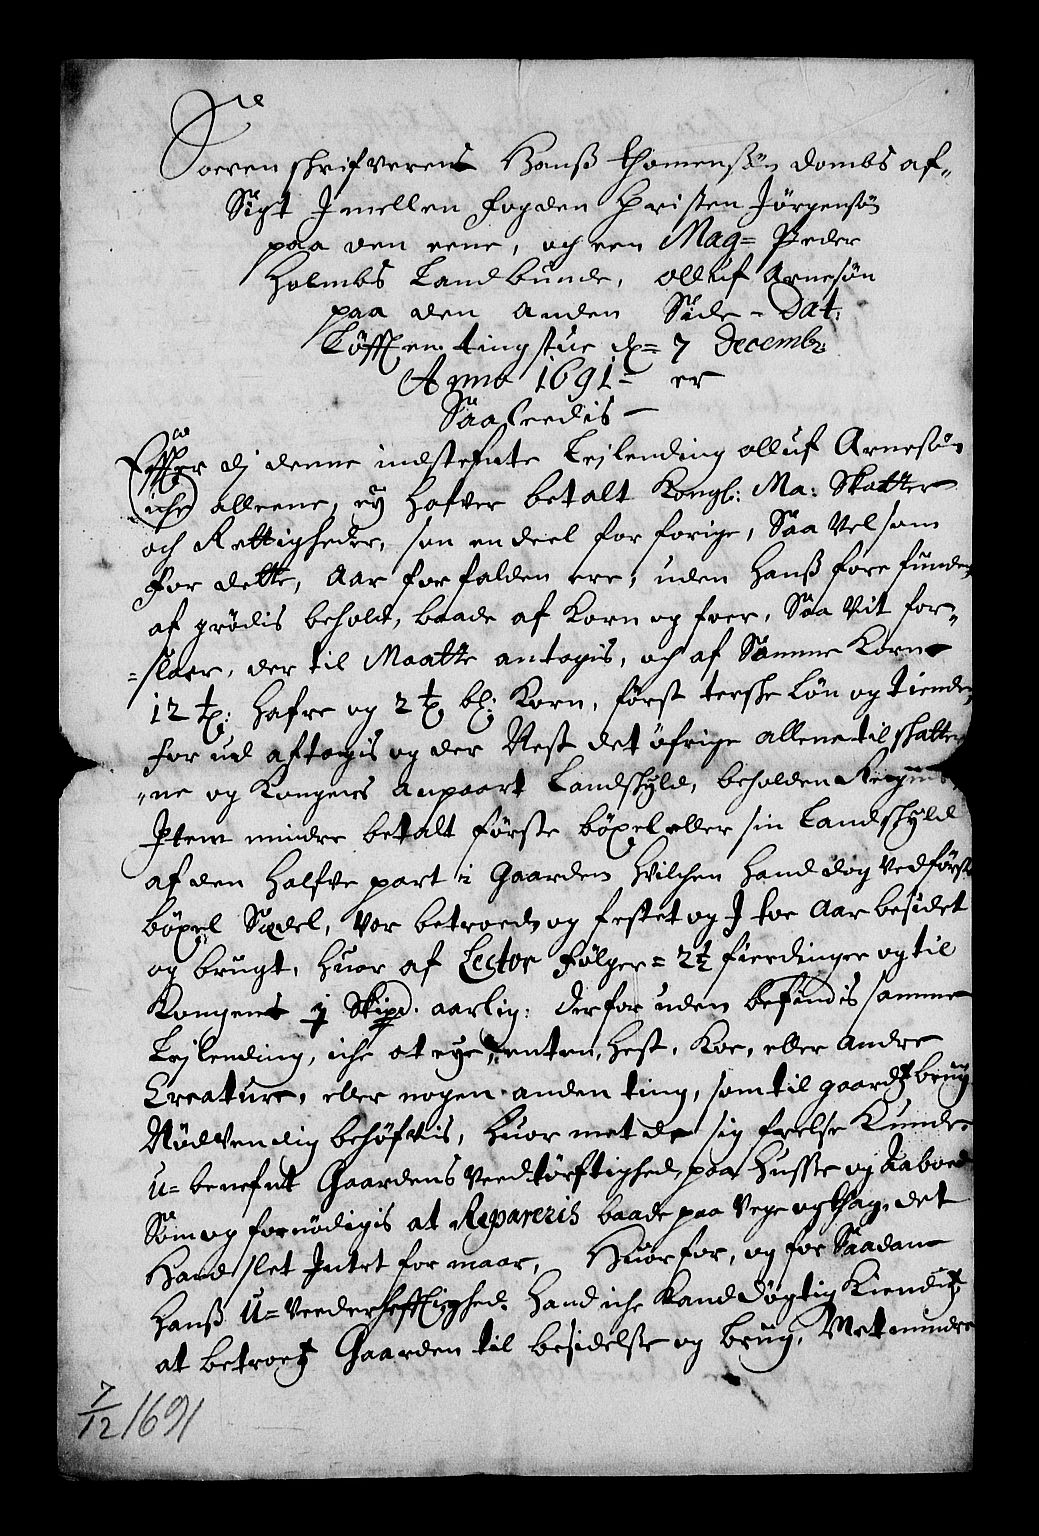 Soeren schrifverens Hanß Thomenßøn dombs af-
Sigt Jmellem fogden Christen Jørgensøn
paa den eene, og een Mag= Peder
Holmbs Landbunde, olluf Arnesøn
paa den anden Side - Dat:
Løffen tingstue dn= 7 Decembr
Anno 1691 - er
Saaleedis -
Efter dj denne indstefnte Leylending olluf Arnesøn
iche alleene, ey hafver betalt Kongl: Ma: Skatter
och Rettigheder, som en deel for forige, Saa Vel som
for dette, Aar forfalden ere, uden hanß fore funden
af grødis behold, baade af Korn og foer, Saa Vit for-
=slaer, der til Maatte antagis, och af Samme Korn
12 t: hafre og 2 t bl: Korn, først terske løn og Tiende
for ud aftagis og der Nest det øfrige allene til skatter
=ne og Kongens anpaart Landskyld, beholden
Jtem mindre betalt første bøxel eller sin Landskyld
af den halfve part i Gaarden hvilchen hand dog ved første
bøxel Sedel, Vor betroed og festet og J toe Aar besidet
og brugt, huor af Lector følger = 2½ fierdinger og til
Kongen j Skipd. aarlig: derfor uden befindis samme
Leylending, iche at eye, enten, hest, Koe, eller andre
Creature, eller nogen anden ting, som til gaardz brug
Nødvendig behøfvis, huor met de sig frelse Kunde
u= benefnt Gaardens Veedtørftighed, paa Husse og
Som og fornødigis at Repareris baade paa Vege og thag, det
Hand slet Jntet formaar, Huorfor, og for Saadan
hanß U= Veederhefftighed, hand iche Kand døgtig Kiendis
at betroes Gaarden til besidelse og brug, Met mindre
7/12 1691